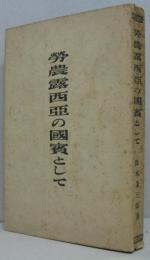 勞農露西亞の國賓として
勞農露西亞の國賓として